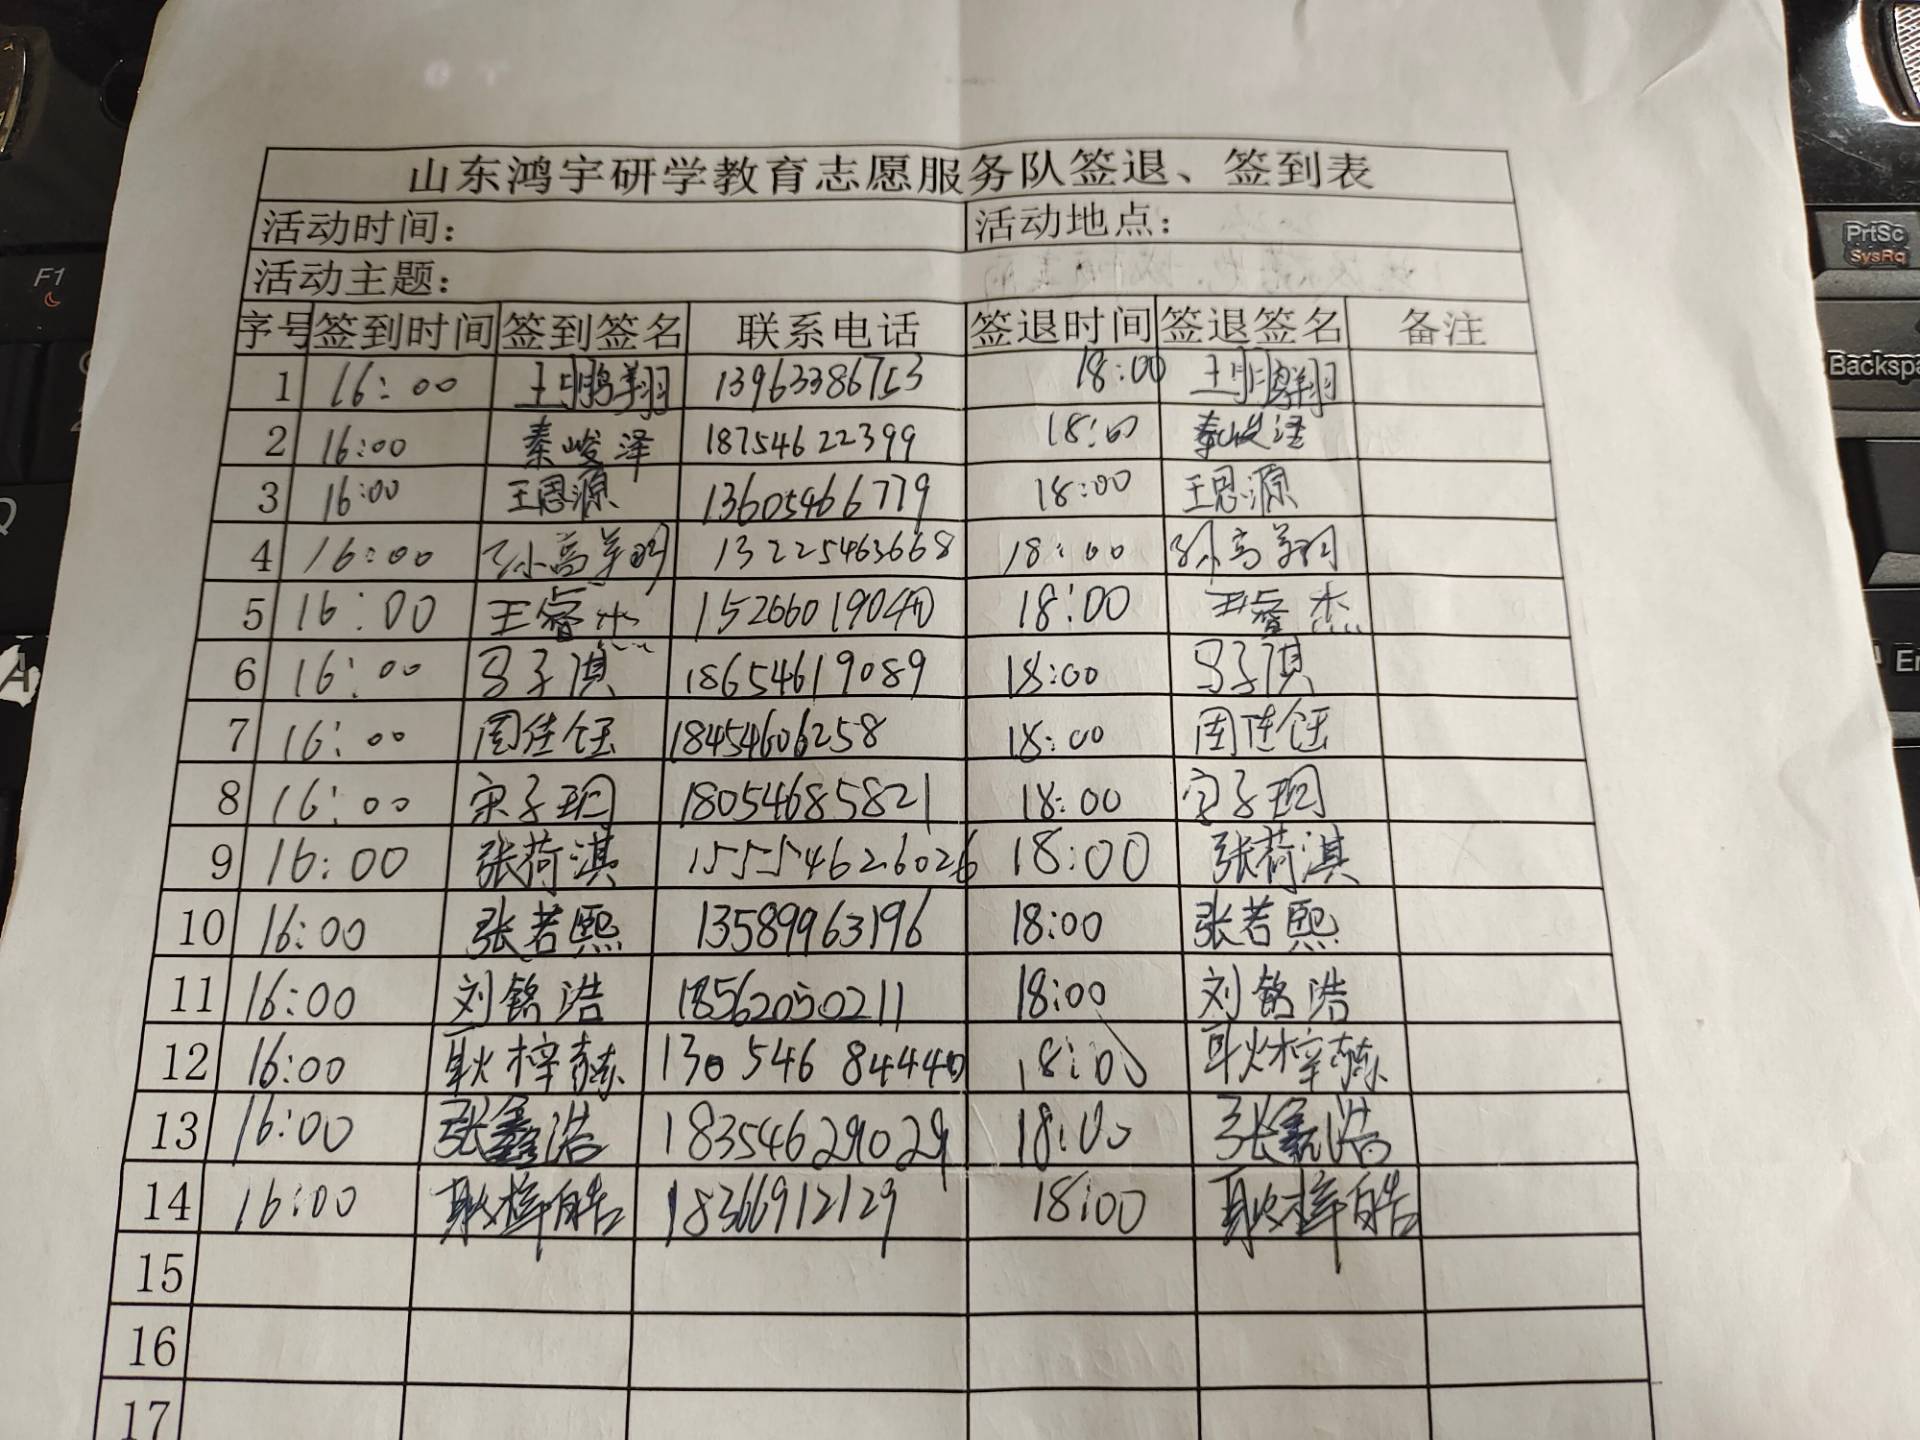 山东鸿宇研学教育志愿服务队签退、签到表
活动时间： 活动地点：
活动主题：
序号 签到时间 签到签名 联系电话 签退时间 签退签名 备注
1 16:00 王鹏翔 13963386753 18:00 王鹏翔
2 16:00 秦峻泽 18754622399 18:00 秦峻泽
3 16:00 王恩源 13605466779 18:00 王恩源
4 16:00 孙高翔 13225463668 18:00 孙高翔
5 16:00 王睿杰 15266019040 18:00 王睿杰
6 16:00 马子淇 18654619089 18:00 马子淇
7 16:00 周佳钰 18454606258 18:00 周佳钰
8 16:00 宋子玥 18054685821 18:00 宋子玥
9 16:00 张荷淇 15554626026 18:00 张荷淇
10 16:00 张若熙 13589963196 18:00 张若熙
11 16:00 刘铭浩 18562050211 18:00 刘铭浩
12 16:00 耿梓 130 546 84440 18:00 耿梓
13 16:00 张鑫浩 18354629029 18:00 张鑫浩
14 16:00 耿梓皓 18366912129 18:00 耿梓皓
15
16
17
F1
Q
A
PrtSc
SysRq
Backspa
En